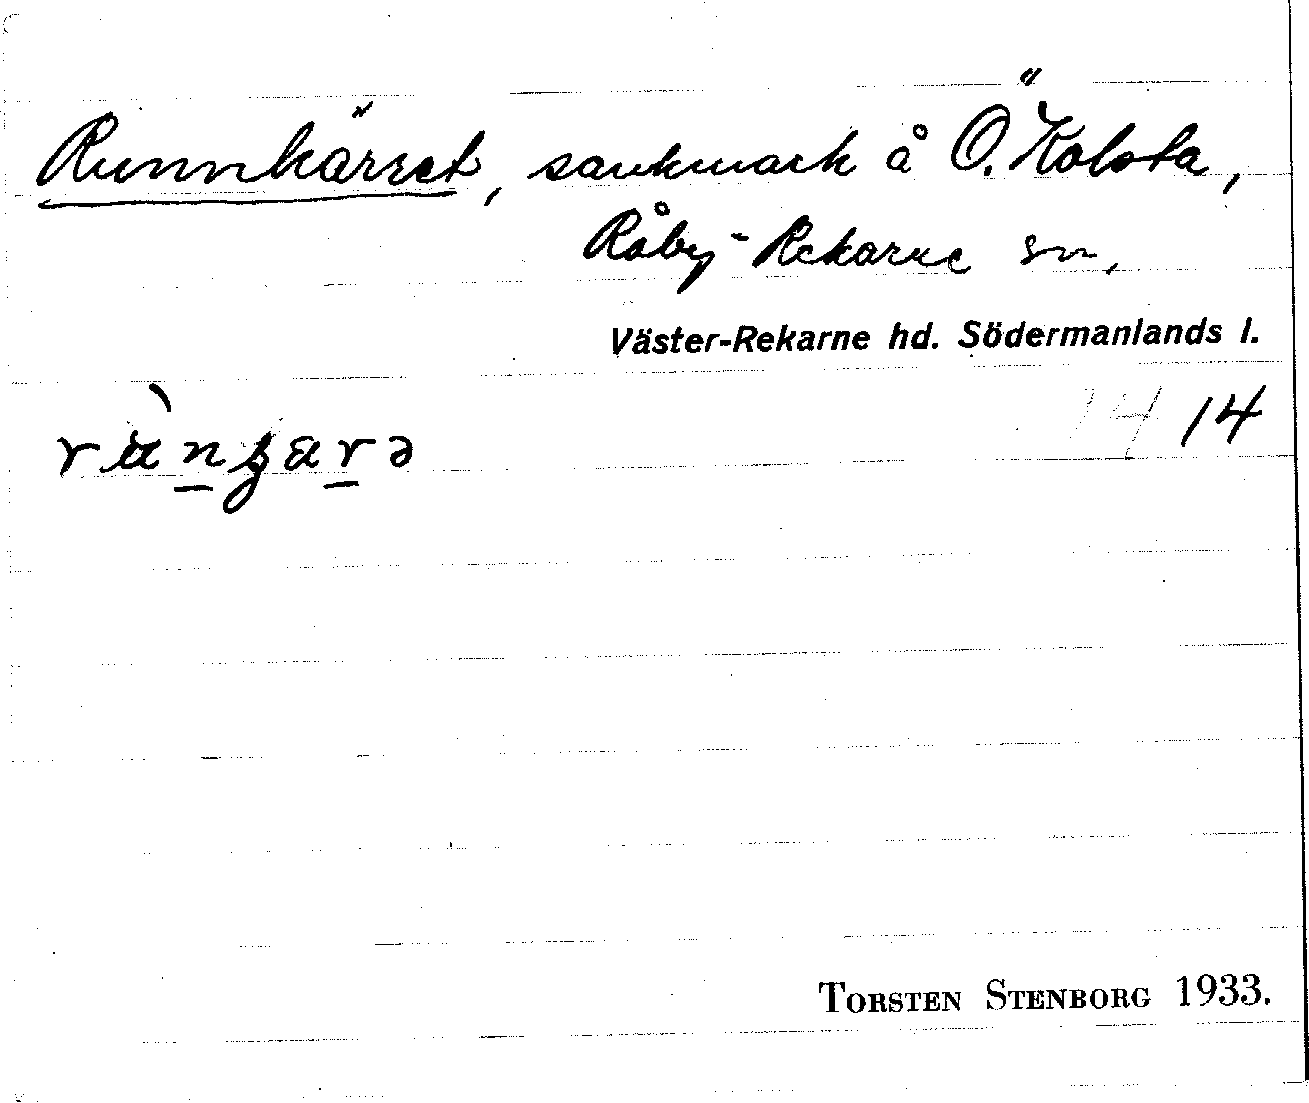 Runnkärret, sankmark å Ö. Kolsta,
Råby-Rekarne sn.
Väster-Rekarne hd. Södermanlands l.
14 14
TORSTEN STENBORG 1933.